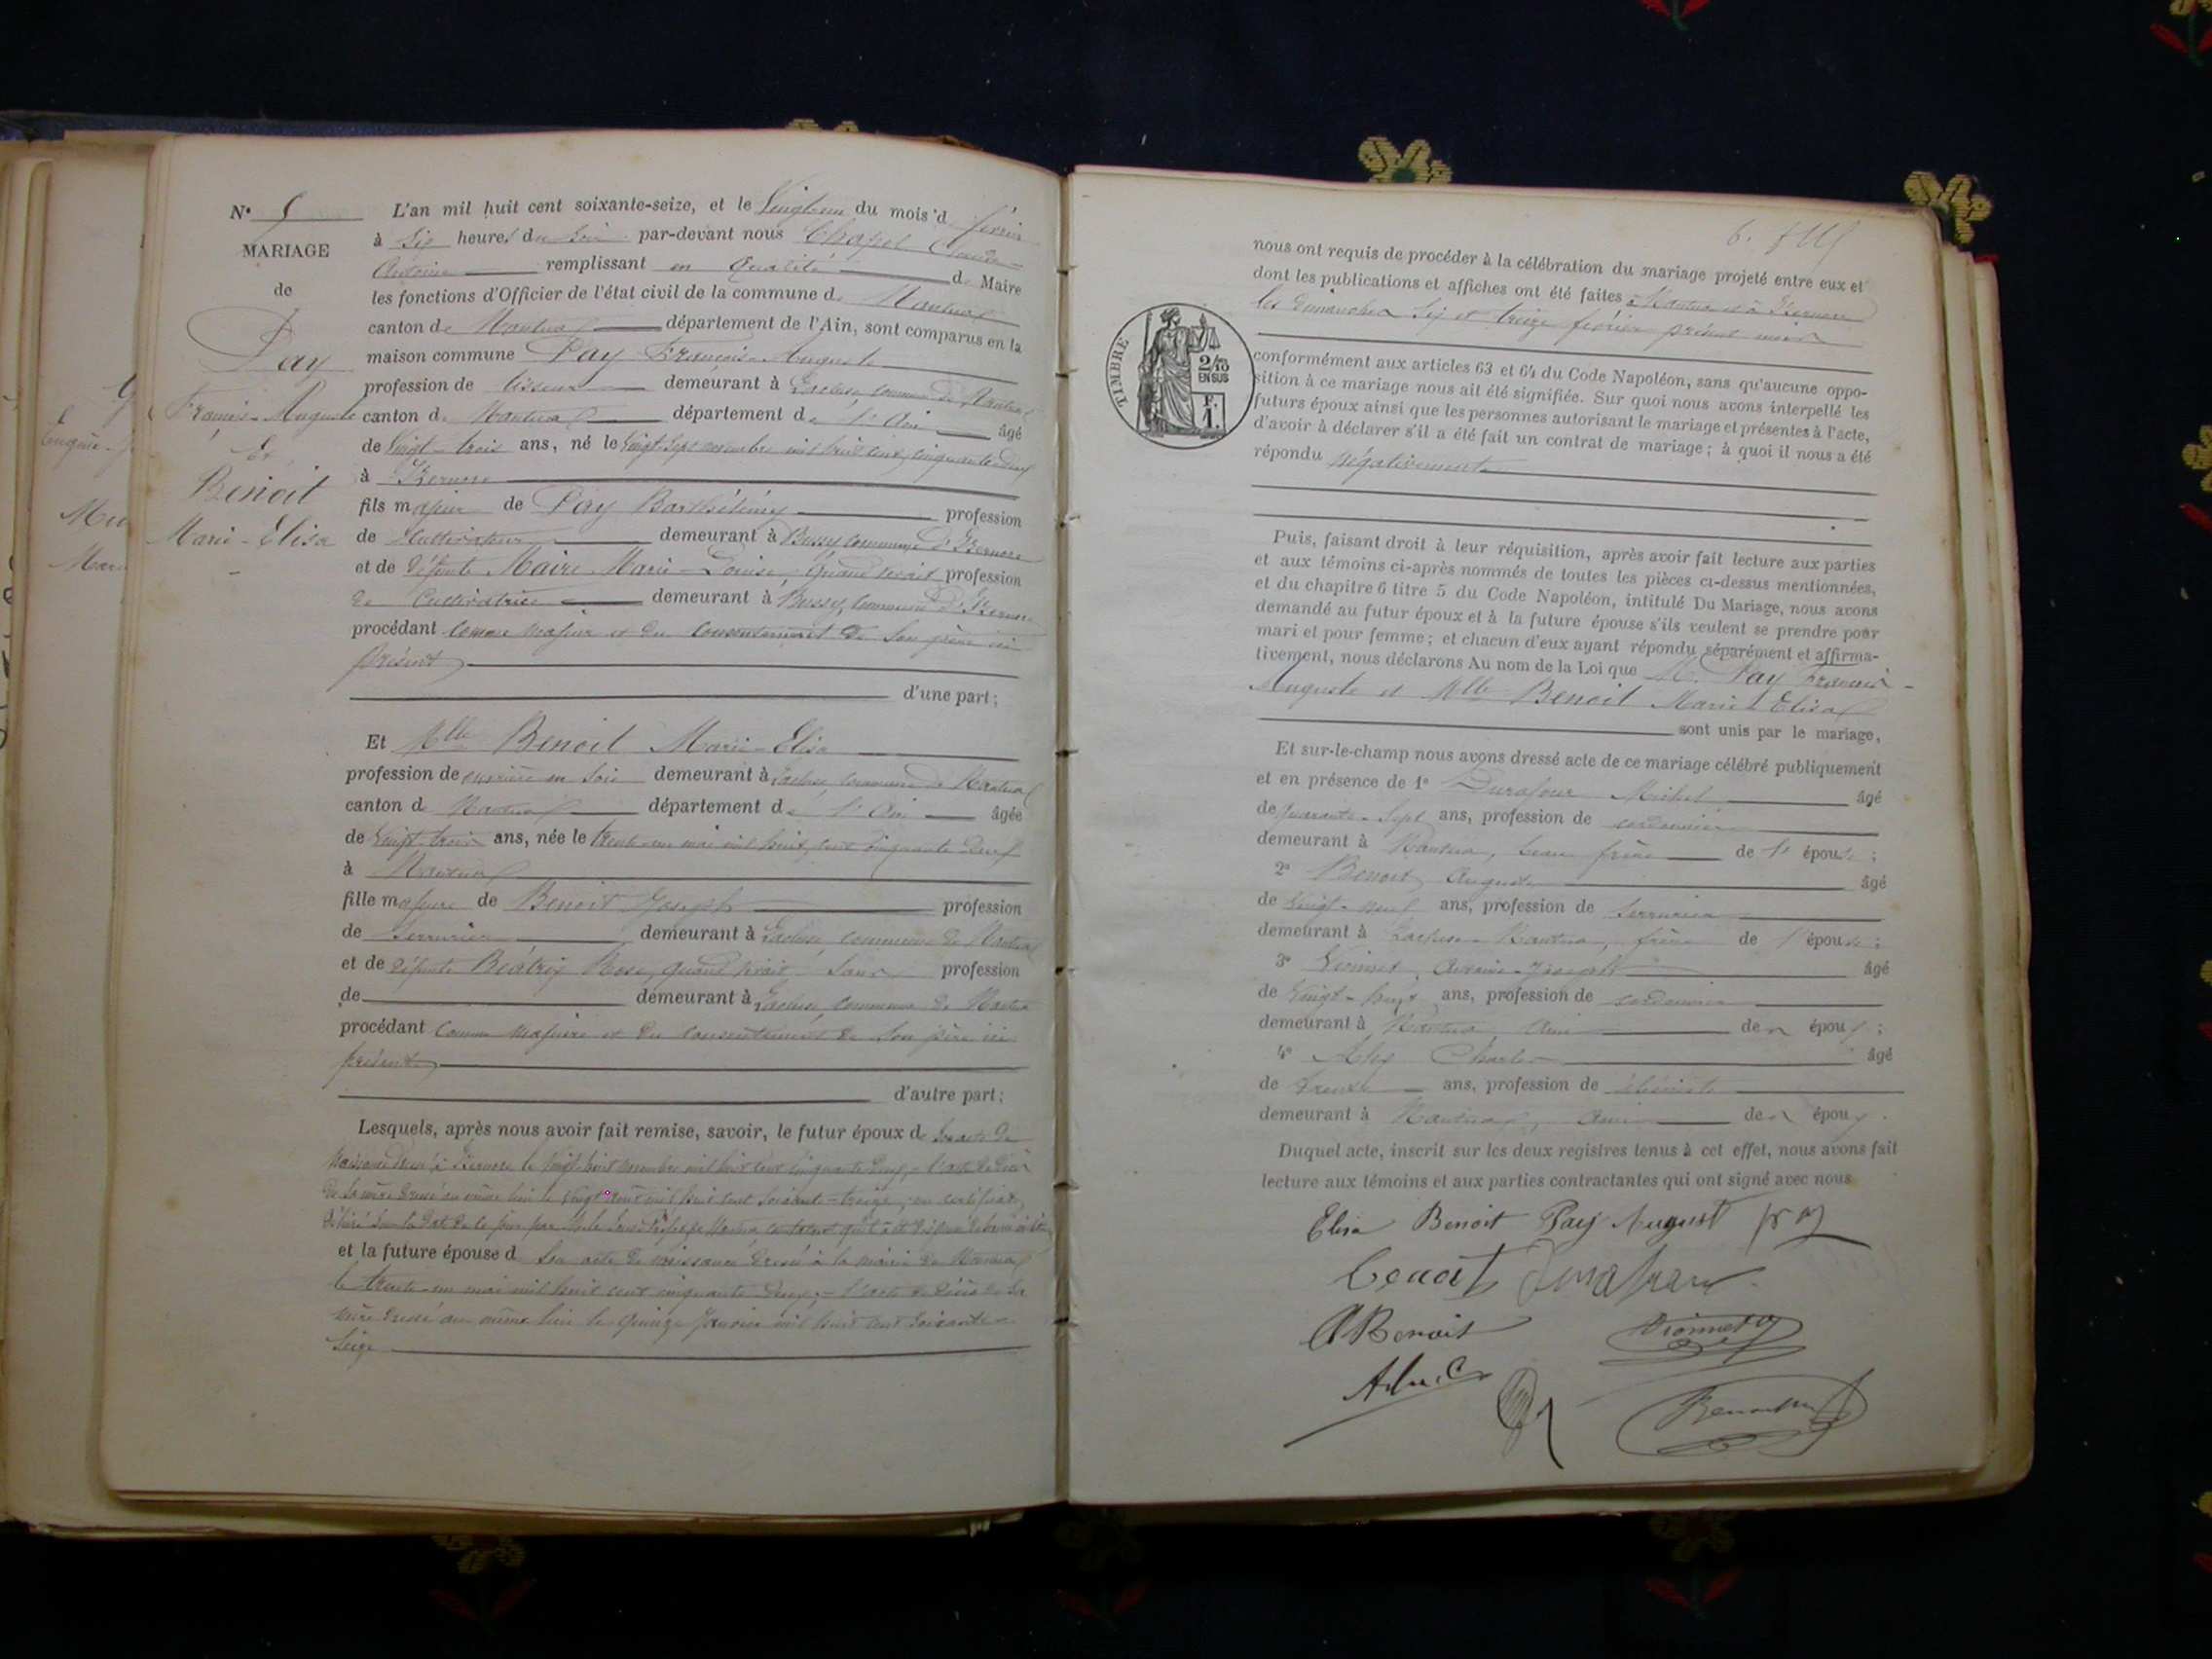 N° 5
MARIAGE
de
Pay
François-Auguste
Et
Benoit
Marie-Elisa
L'an mil huit cent soixante-seize, et le du mois d février
à Six heures du soir par-devant nous Chapel Claude-
Antoine remplissant en qualité de Maire
les fonctions d'Officier de l'état civil de la commune de Nantua
canton de Nantua département de l'Ain, sont comparus en la
maison commune Pay François-Auguste
profession de tisseur demeurant à Lacluse commune de Nantua
canton de Nantua département de l'Ain âgé
de Vingt-trois ans, né le Vingt-sept novembre mil huit cent cinquante-deux
à Izernore
fils majeur de Pay Barthélémy profession
de Cultivateur demeurant à Bussy commune d'Izernore
et de défunte Maire Marie-Louise, quand vivait profession
de Cultivatrice demeurant à Bussy, commune d'Izernore
procédant comme majeur et du consentement de son père ici
présent
d'une part;
Et Mlle Benoit Marie-Elisa
profession de ouvrière en soie demeurant à Lacluse commune de Nantua
canton d Nantua département de l'Ain âgée
de Vingt-trois ans, née le trente-un mai mil huit cent cinquante-deux
à Nantua
fille majeure de Benoit Joseph profession
de Serrurier demeurant à Lacluse, commune de Nantua
et de défunte Béatrix Rose, quand vivait Sans profession
de demeurant à Lacluse, commune de Nantua
procédant comme majeure et du consentement de son père ici
présent
d'autre part;
Lesquels, après nous avoir fait remise, savoir, le futur époux d son acte de
naissance dressé à Izernore le vingt-huit novembre mil huit cent cinquante-deux, = l'acte de décès
de sa mère dressé au même lieu le vingt août mil huit cent soixante-treize, un certificat
délivré sous la date de ce jour par
et la future épouse d son acte de naissance dressé à la mairie de Nantua
le trente-un mai mil huit cent cinquante-deux; = l'acte de décès de sa
mère dressé au même lieu le quinze Janvier mil huit cent soixante-
seize
nous ont requis de procéder à la célébration du mariage projeté entre eux et
dont les publications et affiches ont été faites à Nantua et à Izernore
les dimanches Six et treize février présent mois
TIMBRE
2/10
EN SUS
F.
1.
conformément aux articles 63 et 64 du Code Napoléon, sans qu'aucune oppo-
sition à ce mariage nous ait été signifiée. Sur quoi nous avons interpellé les
futurs époux ainsi que les personnes autorisant le mariage et présentes à l'acte,
d'avoir à déclarer s'il a été fait un contrat de mariage; à quoi il nous a été
répondu négativement
Puis, faisant droit à leur réquisition, après avoir fait lecture aux parties
et aux témoins ci-après nommés de toutes les pièces ci-dessus mentionnées,
et du chapitre 6 titre 5 du Code Napoléon, intitulé Du Mariage, nous avons
demandé au futur époux et à la future épouse s'ils veulent se prendre pour
mari et pour femme; et chacun d'eux ayant répondu séparément et affirma-
tivement, nous déclarons Au nom de la Loi que M. Pay François-
Auguste et Mlle Benoit Marie-Elisa
sont unis par le mariage,
Et sur-le-champ nous avons dressé acte de ce mariage célébré publiquement
et en présence de 1° Durafour Michel âgé
de quarante-Sept ans, profession de cordonnier
demeurant à Nantua, beau frère de l'épouse;
2° Benoit Auguste âgé
de Vingt-neuf ans, profession de serrurier
demeurant à Lacluse-Nantua, frère de l'épouse;
3° Antoine-Joseph âgé
de Vingt-huit ans, profession de cordonnier
demeurant à Nantua, Ami des époux;
4° Charles âgé
de trente ans, profession de ébéniste
demeurant à Nantua, Ami des époux.
Duquel acte, inscrit sur les deux registres tenus à cet effet, nous avons fait
lecture aux témoins et aux parties contractantes qui ont signé avec nous
Elisa Benoit Pay August
Benoit
A Benoit